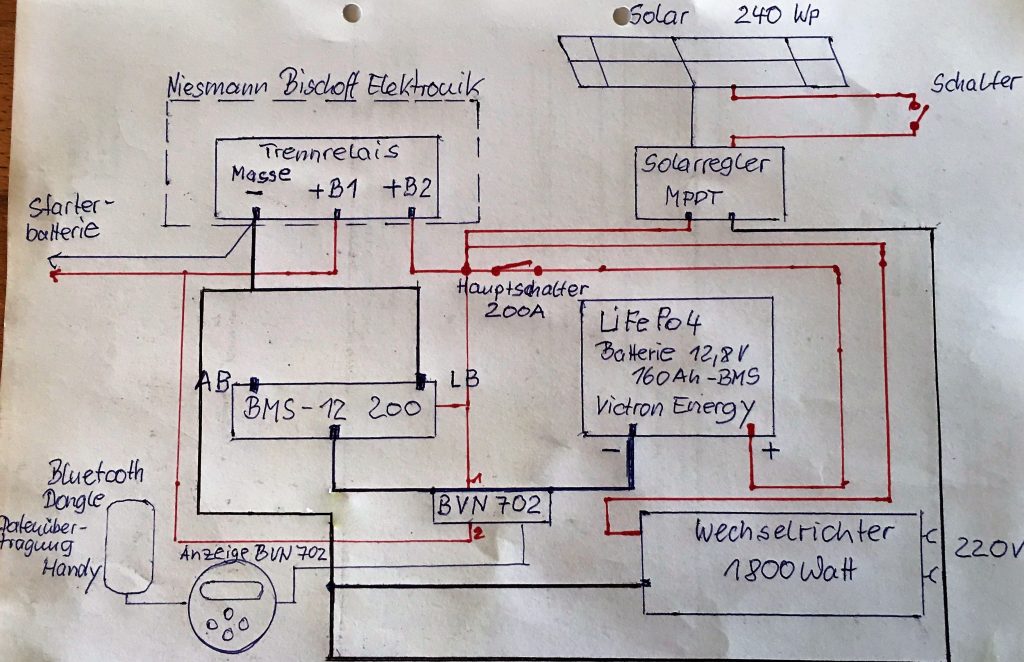 Solar 240 Wp
Niesmann Bischoff Elektronik
Schalter
Trennrelais
Masse
- +B1 +B2
Solarregler
MPDT
Starter-
batterie
Hauptschalter
200A
LiFePo4
Batterie 12,8V
160Ah-BMS
Victron Energy
- +
AB LB
BMS-12 200
1
BVN 702
2
Bluetooth
Dongle
Datenüber-
tragung
Handy
Anzeige BVN 702
Wechselrichter
1800 Watt
220V